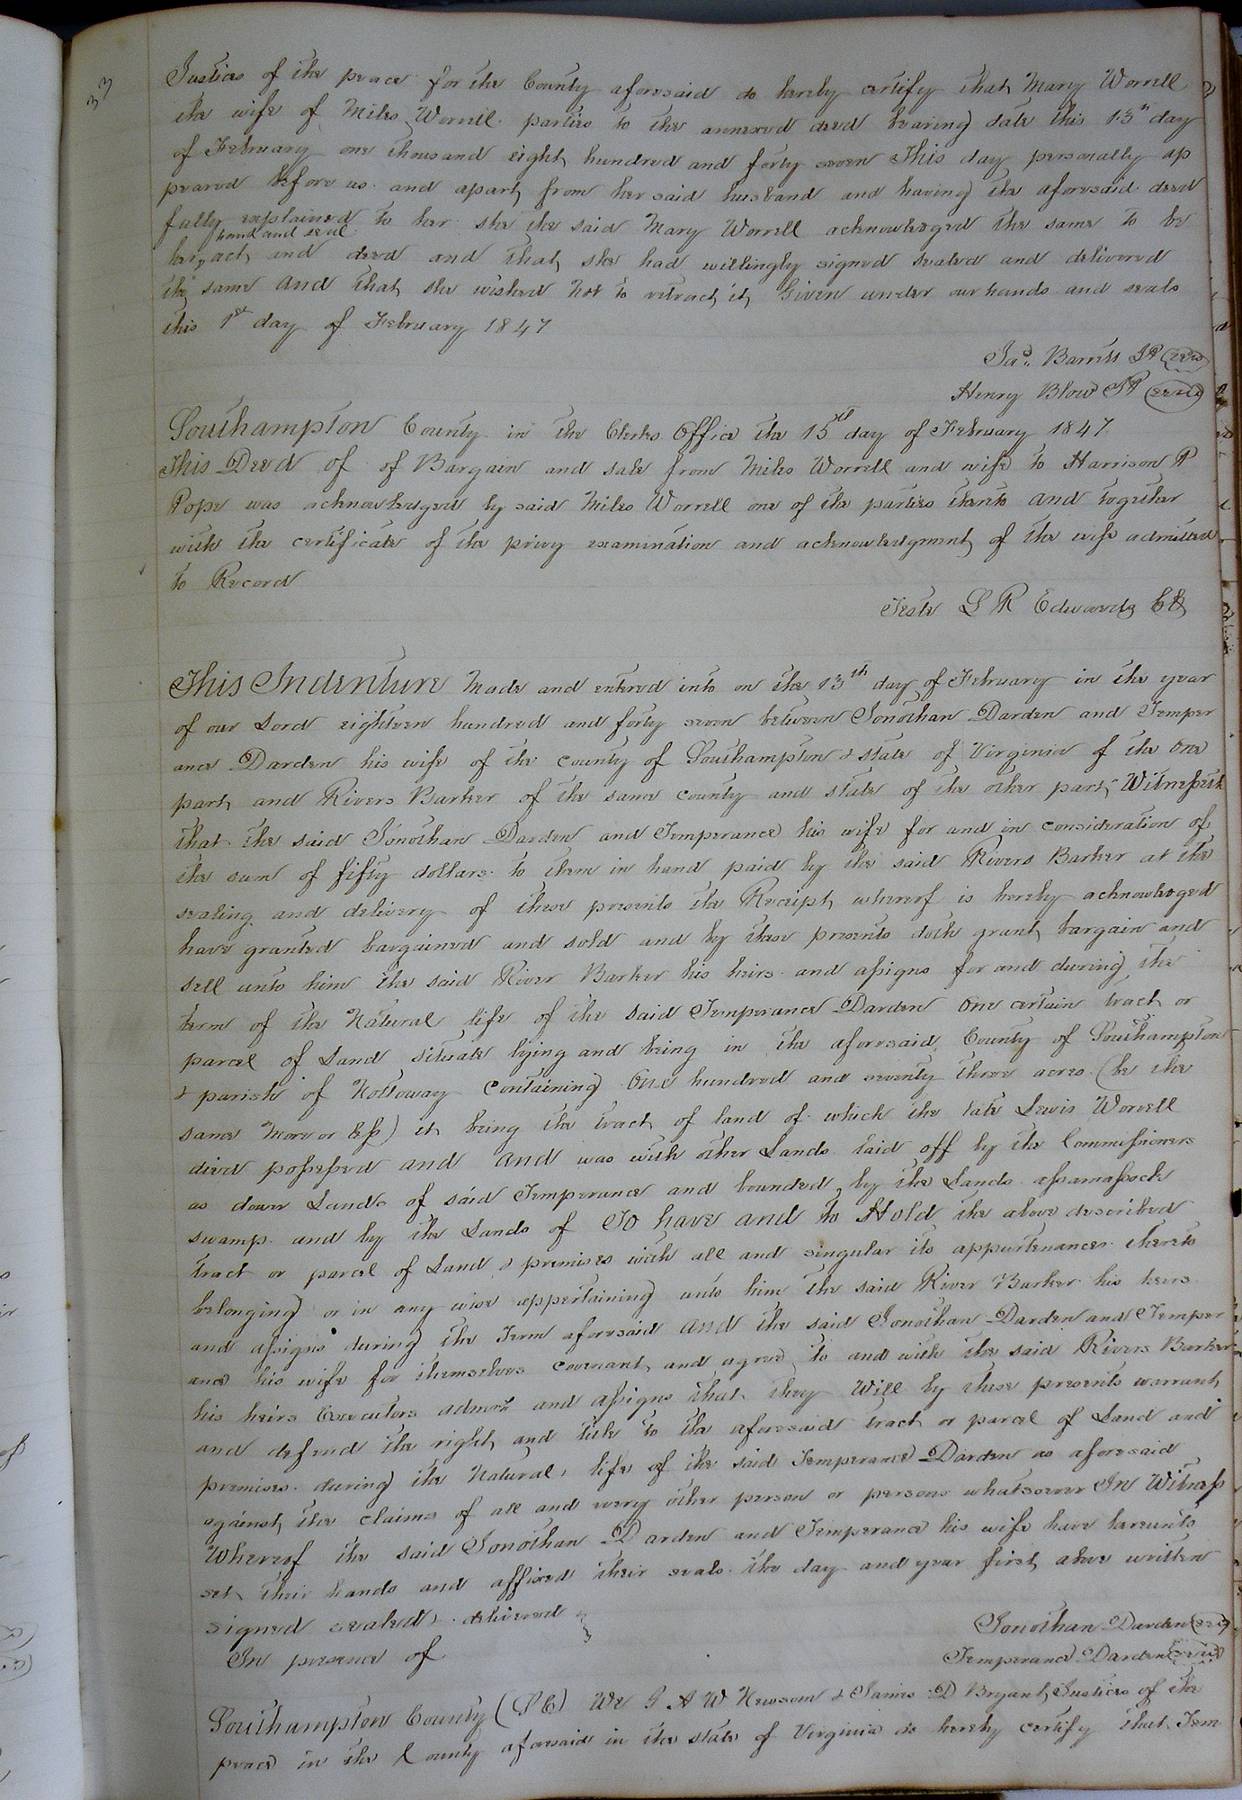 33
Justices of the peace for the County aforesaid do hereby certify that Mary Worrell
the wife of Miles Worrell parties to the annexed deed bearing date this 13th day
of February one thousand eight hundred and forty seven This day personally ap
peared before us and apart from her said husband and having the aforesaid deed
fully explained to her she the said Mary Worrell acknowledged the same to be
hand and seal
her act and deed and that she had willingly signed sealed and delivered
the same and that she wished not to retract it Given under our hands and seals
this 1st day of February 1847
Jas. Barrett JP seal
Henry Blow JP seal
Southampton County in the Clerks Office the 15th day of February 1847
This Deed of of Bargain and sale from Miles Worrell and wife to Harrison P
Pope was acknowledged by said Miles Worrell one of the parties thereto and together
with the certificate of the privy examination and acknowledgment of the wife admitted
to Record
Teste L R Edwards Clk
This Indenture Made and entered into on the 13th day of February in the year
of our Lord eighteen hundred and forty seven between Jonothan Darden and Temper
ance Darden his wife of the county of Southampton & state of Virginia of the one
part and Rivers Barker of the same county and state of the other part Witnesseth
that the said Jonothan Darden and Temperance his wife for and in consideration of
the sum of fifty dollars to them in hand paid by the said Rivers Barker at the
sealing and delivery of these presents the Receipt whereof is hereby acknowledged
have granted bargained and sold and by these presents doth grant bargain and
sell unto him the said River Barker his heirs and assigns for and during the
term of the Natural life of the said Temperance Darden One certain tract or
parcel of Land situate lying and being in the aforesaid County of Southampton
& parish of Nottoway Containing One hundred and seventy three acres (be the
same More or less) it being the tract of land of which the late Lewis Worrell
died possessed and and was with other Lands laid off by the Commissioners
as dower Lands of said Temperance and bounded by the Lands assamassock
swamp and by the Lands of To have and to Hold the above described
tract or parcel of Land & premises with all and singular its appurtenances thereto
belonging or in any wise appertaining unto him the said River Barker his heirs
and assigns during the Term aforesaid and the said Jonothan Darden and Temper
ance his wife for themselves covenant and agree to and with the said Rivers Barker
his heirs Executors admors and assigns that they Will by these presents warrant
and defend the right and title to the aforesaid tract or parcel of Land and
premises during the Natural life of the said Temperance Darden as aforesaid
against the claims of all and every other person or persons whatsoever In Witness
Whereof the said Jonothan Darden and Temperance his wife have hereunto
set their hands and affixed their seals the day and year first above written
signed sealed & delivered
In presence of
Jonothan Darden seal
Temperance Darden seal
Southampton County (SC) We J A W Newsom & James D Bryant Justices of the
peace in the County aforesaid in the state of Virginia do hereby certify that Tem